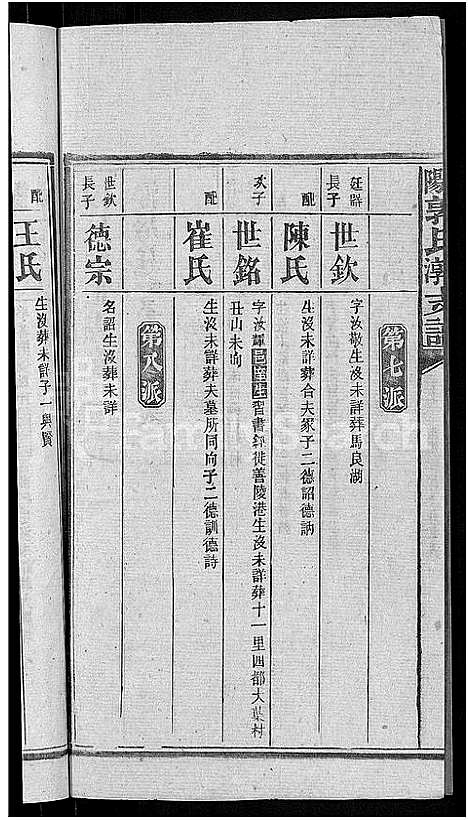 陽郭氏潮支譜
第七派
廷器長子
世欽
字汝敬生沒未詳葬馬良湖
配
陳氏
生沒未詳葬合夫冢子二德詔德訥
次子
世銘
字汝邑庠生習書經徙善陵港生沒未詳葬十一里四都大葉村
丑山未向
配
崔氏
生沒未詳葬夫墓所同向子二德訓德詩
第八派
世欽長子
德宗
名詔生沒葬未詳
配
王氏
生沒葬未詳子一與賢